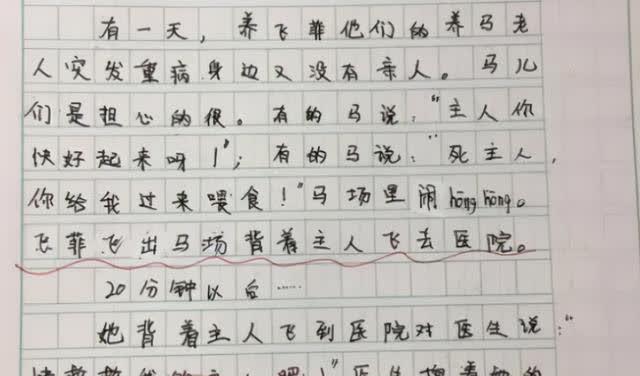 有一天，养飞菲他们的养马老
人突发重病身边又没有亲人。马儿
们是担心的很。有的马说："主人你
快好起来呀！"；有的马说："死主人，
你给我过来喂食！"马场里闹hōnghōng。
飞菲飞出马场背着主人飞去医院。
20分钟以后……
她背着主人飞到医院对医生说："